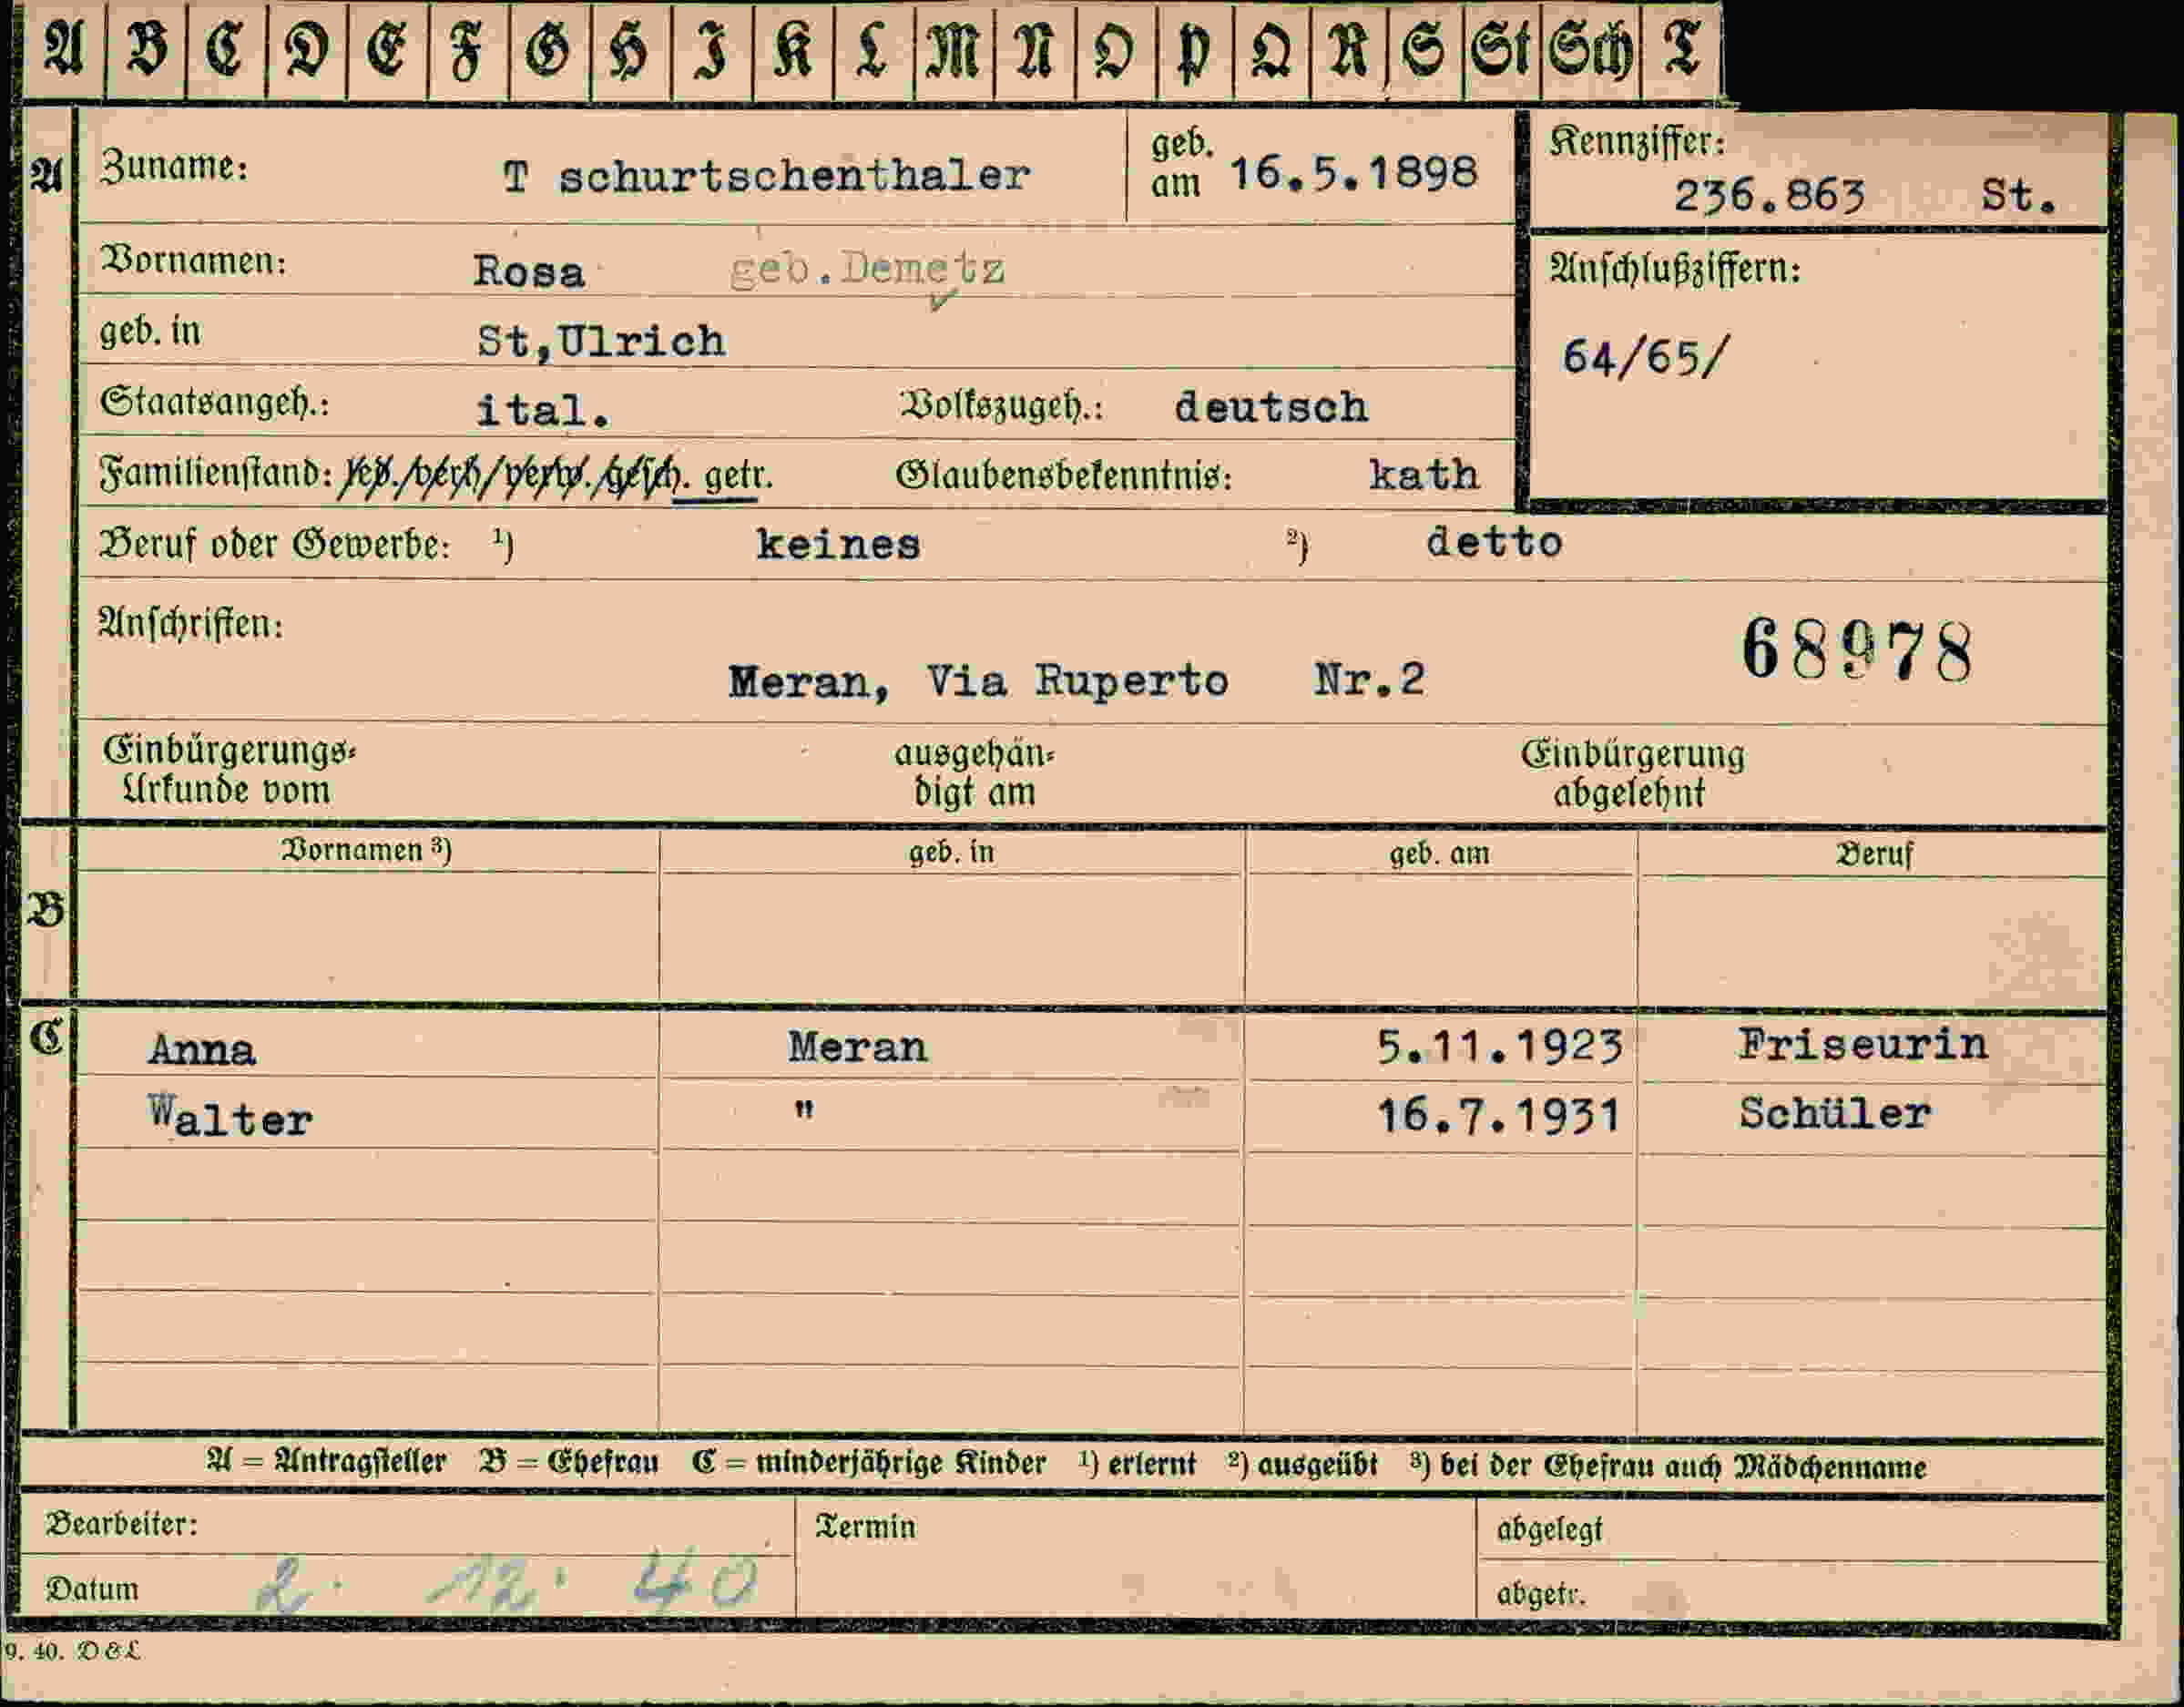 A B C D E F G H I K L M N O P Q R S St Sch T
A Zuname: T schurtschenthaler geb. am 16.5.1898 Kennziffer: 236.863 St.
Vornamen: Rosa geb.Demetz
Anschlußziffern:
geb. in St,Ulrich
64/65/
Staatsangeh.: ital. Volkszugeh.: deutsch
Familienstand: led./verh/verw./gesch. getr. Glaubensbekenntnis: kath
Beruf oder Gewerbe: ¹) keines ²) detto
Anschriften:
68978
Meran, Via Ruperto Nr.2
Einbürgerungs- ausgehän- Einbürgerung
Urkunde vom digt am abgelehnt
Vornamen ³) geb. in geb. am Beruf
B
C Anna Meran 5.11.1923 Friseurin
Walter " 16.7.1931 Schüler
A = Antragsteller B = Ehefrau C = minderjährige Kinder ¹) erlernt ²) ausgeübt ³) bei der Ehefrau auch Mädchenname
Bearbeiter: Termin abgelegt
Datum 2. 12. 40 abgetr.
9. 40. D & L